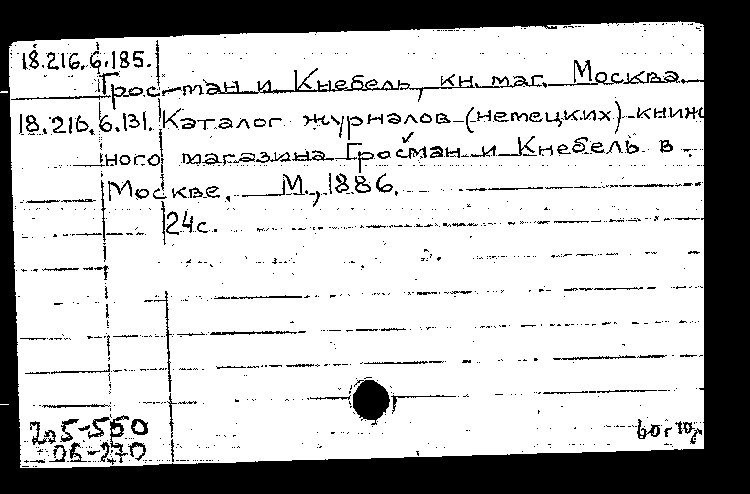 18.216.6.185.
Гросман и Кнебель, кн. маг. Москва.
18.216.6.131. Каталог журналов (немецких) книж
ного магазина Гросман и Кнебель в
Москве. М., 1886.
24с.
205-550
06-270